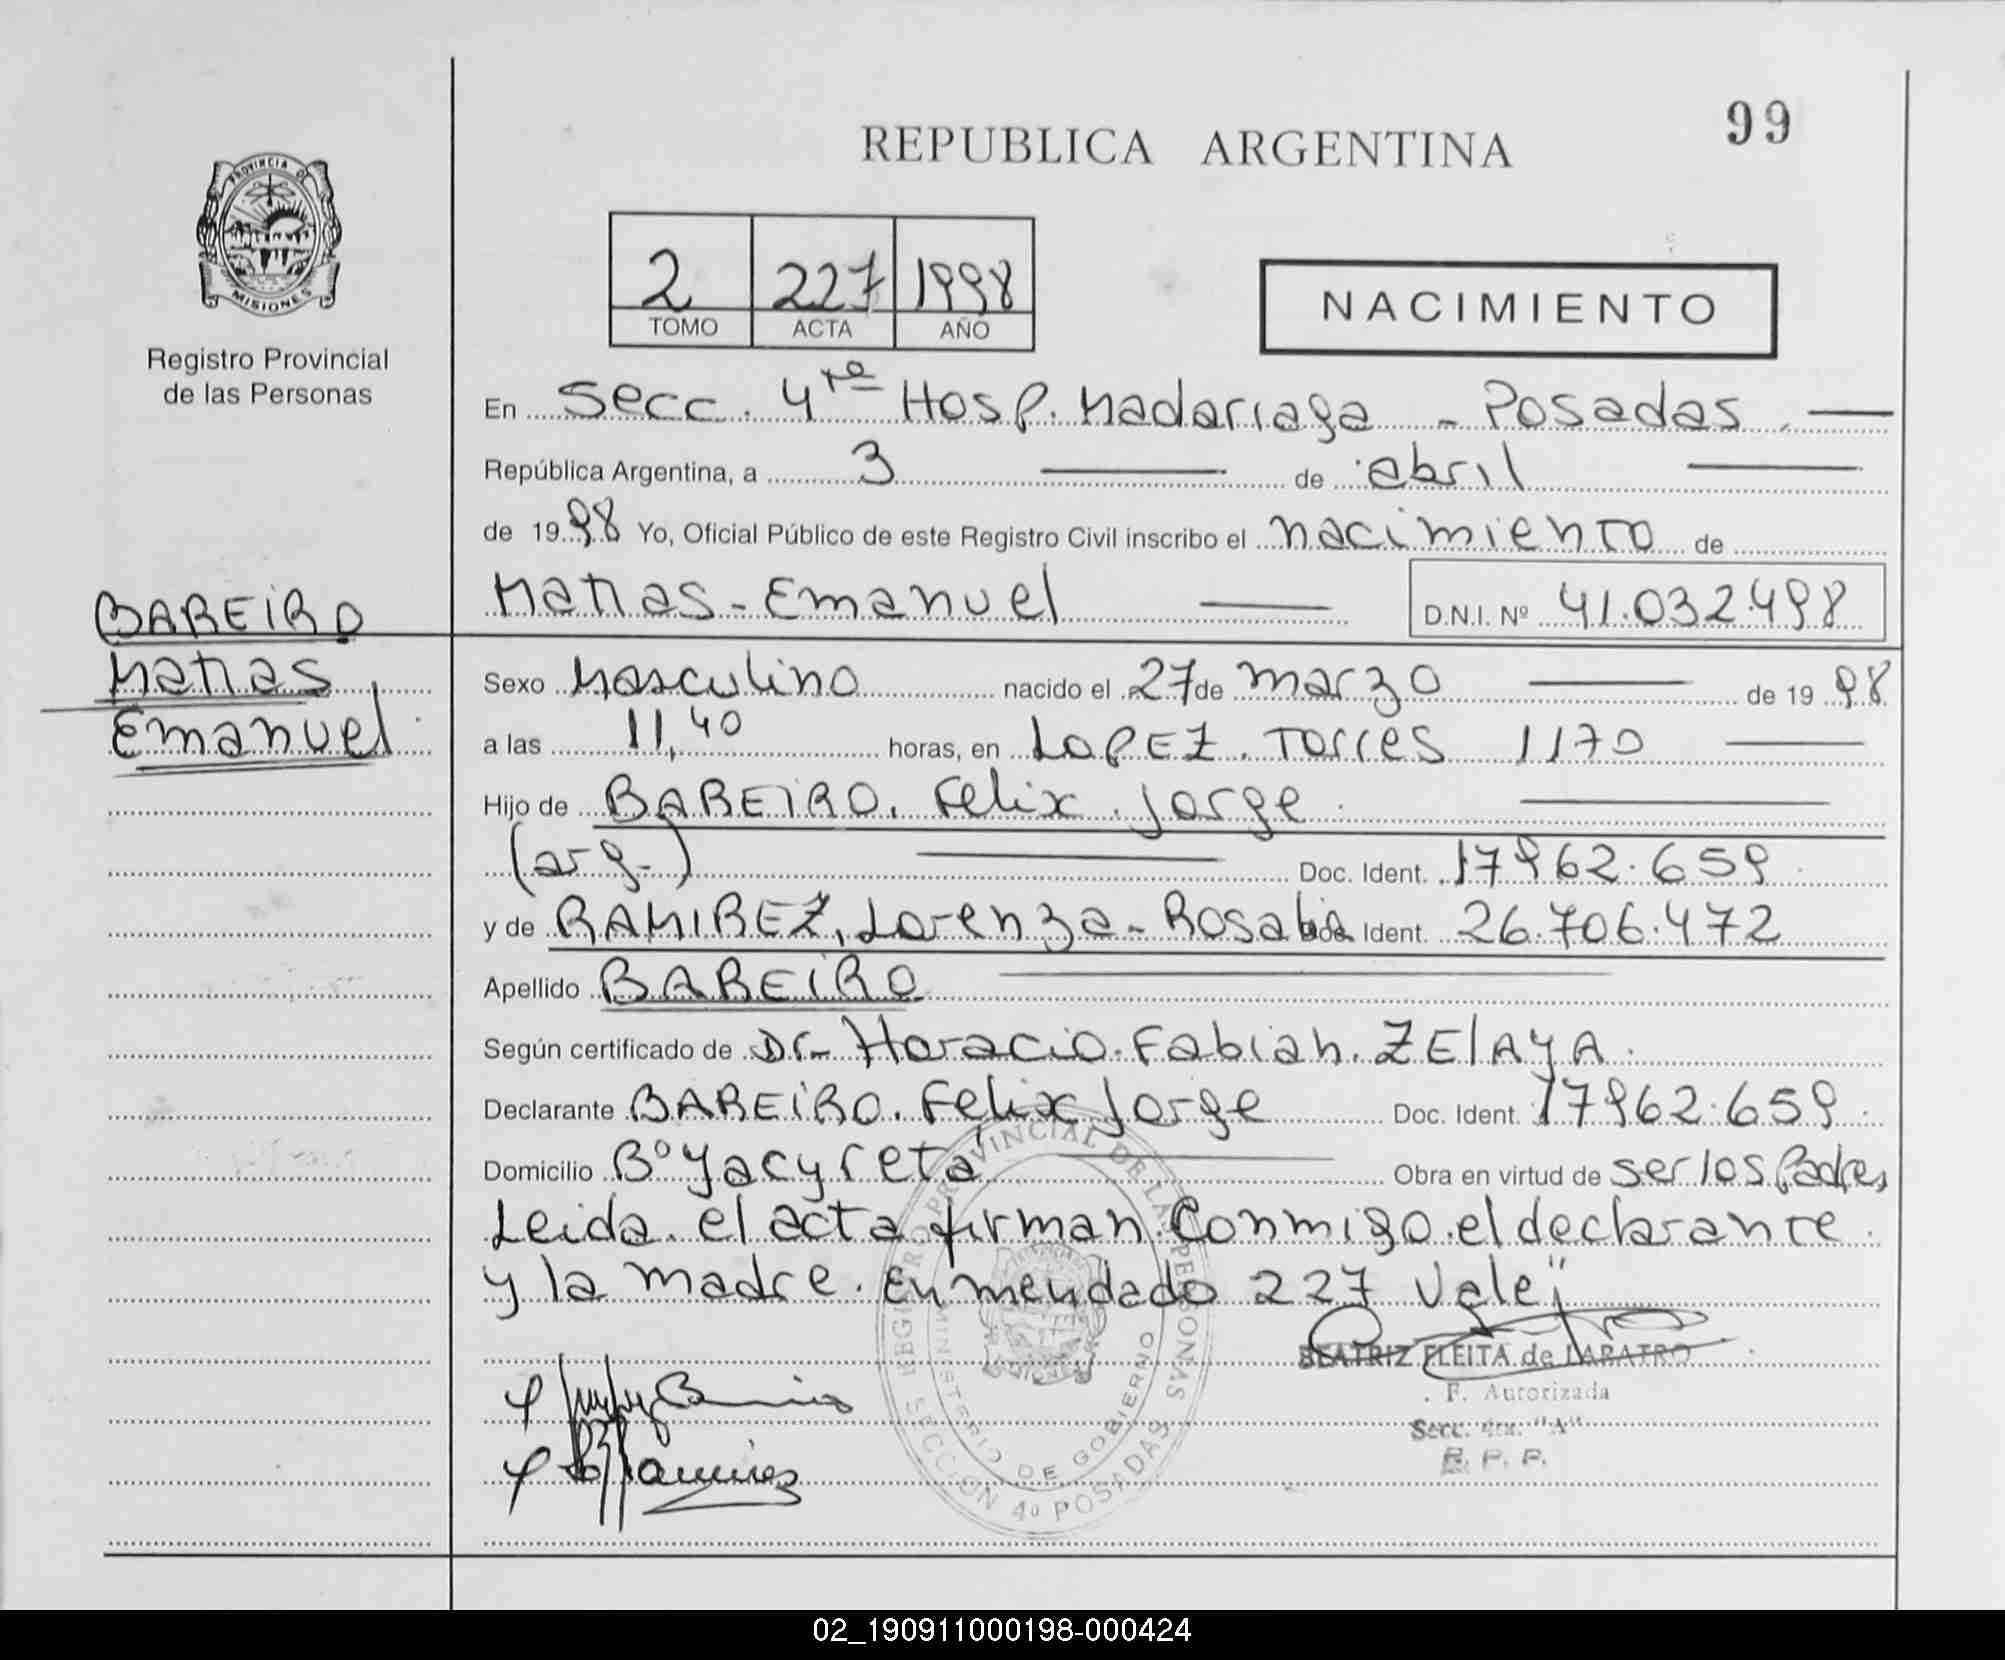 REPUBLICA ARGENTINA
99
PROVINCIA DE
MISIONES
Registro Provincial
de las Personas
2 227 1998
TOMO ACTA AÑO
NACIMIENTO
En Secc. 4ta Hosp. Madariaga - Posadas
República Argentina, a 3 de abril
de 1998 Yo, Oficial Público de este Registro Civil inscribo el nacimiento de
Matias - Emanuel D.N.I. Nº 41.032.498
BAREIRO
Matias
Emanuel
Sexo Masculino nacido el 27 de marzo de 1998
a las 11,40 horas, en LOPEZ. Torres 1170
Hijo de BAREIRO. Felix. Jorge.
(arg.) Doc. Ident. 17962.659
y de RAMIREZ, Lorenza - Rosalia Doc. Ident. 26.706.472
Apellido BAREIRO
Según certificado de Dr. Horacio. Fabian. ZElAyA.
Declarante BAREIRO. Felix Jorge Doc. Ident. 17962.659.
Domicilio Bº Yacyreta Obra en virtud de ser los Padres
Leida. el acta firman. Conmigo. el declarante.
y la madre. Enmendado 227 Vale"
REGISTRO PROVINCIAL DE LAS PERSONAS
MINISTERIO DE GOBIERNO
SECCION 4º POSADAS
BEATRIZ FLEITA de LABATRO
F. Autorizada
Secc. 4ta. "A"
R. P. P.
Ramirez
02_190911000198-000424